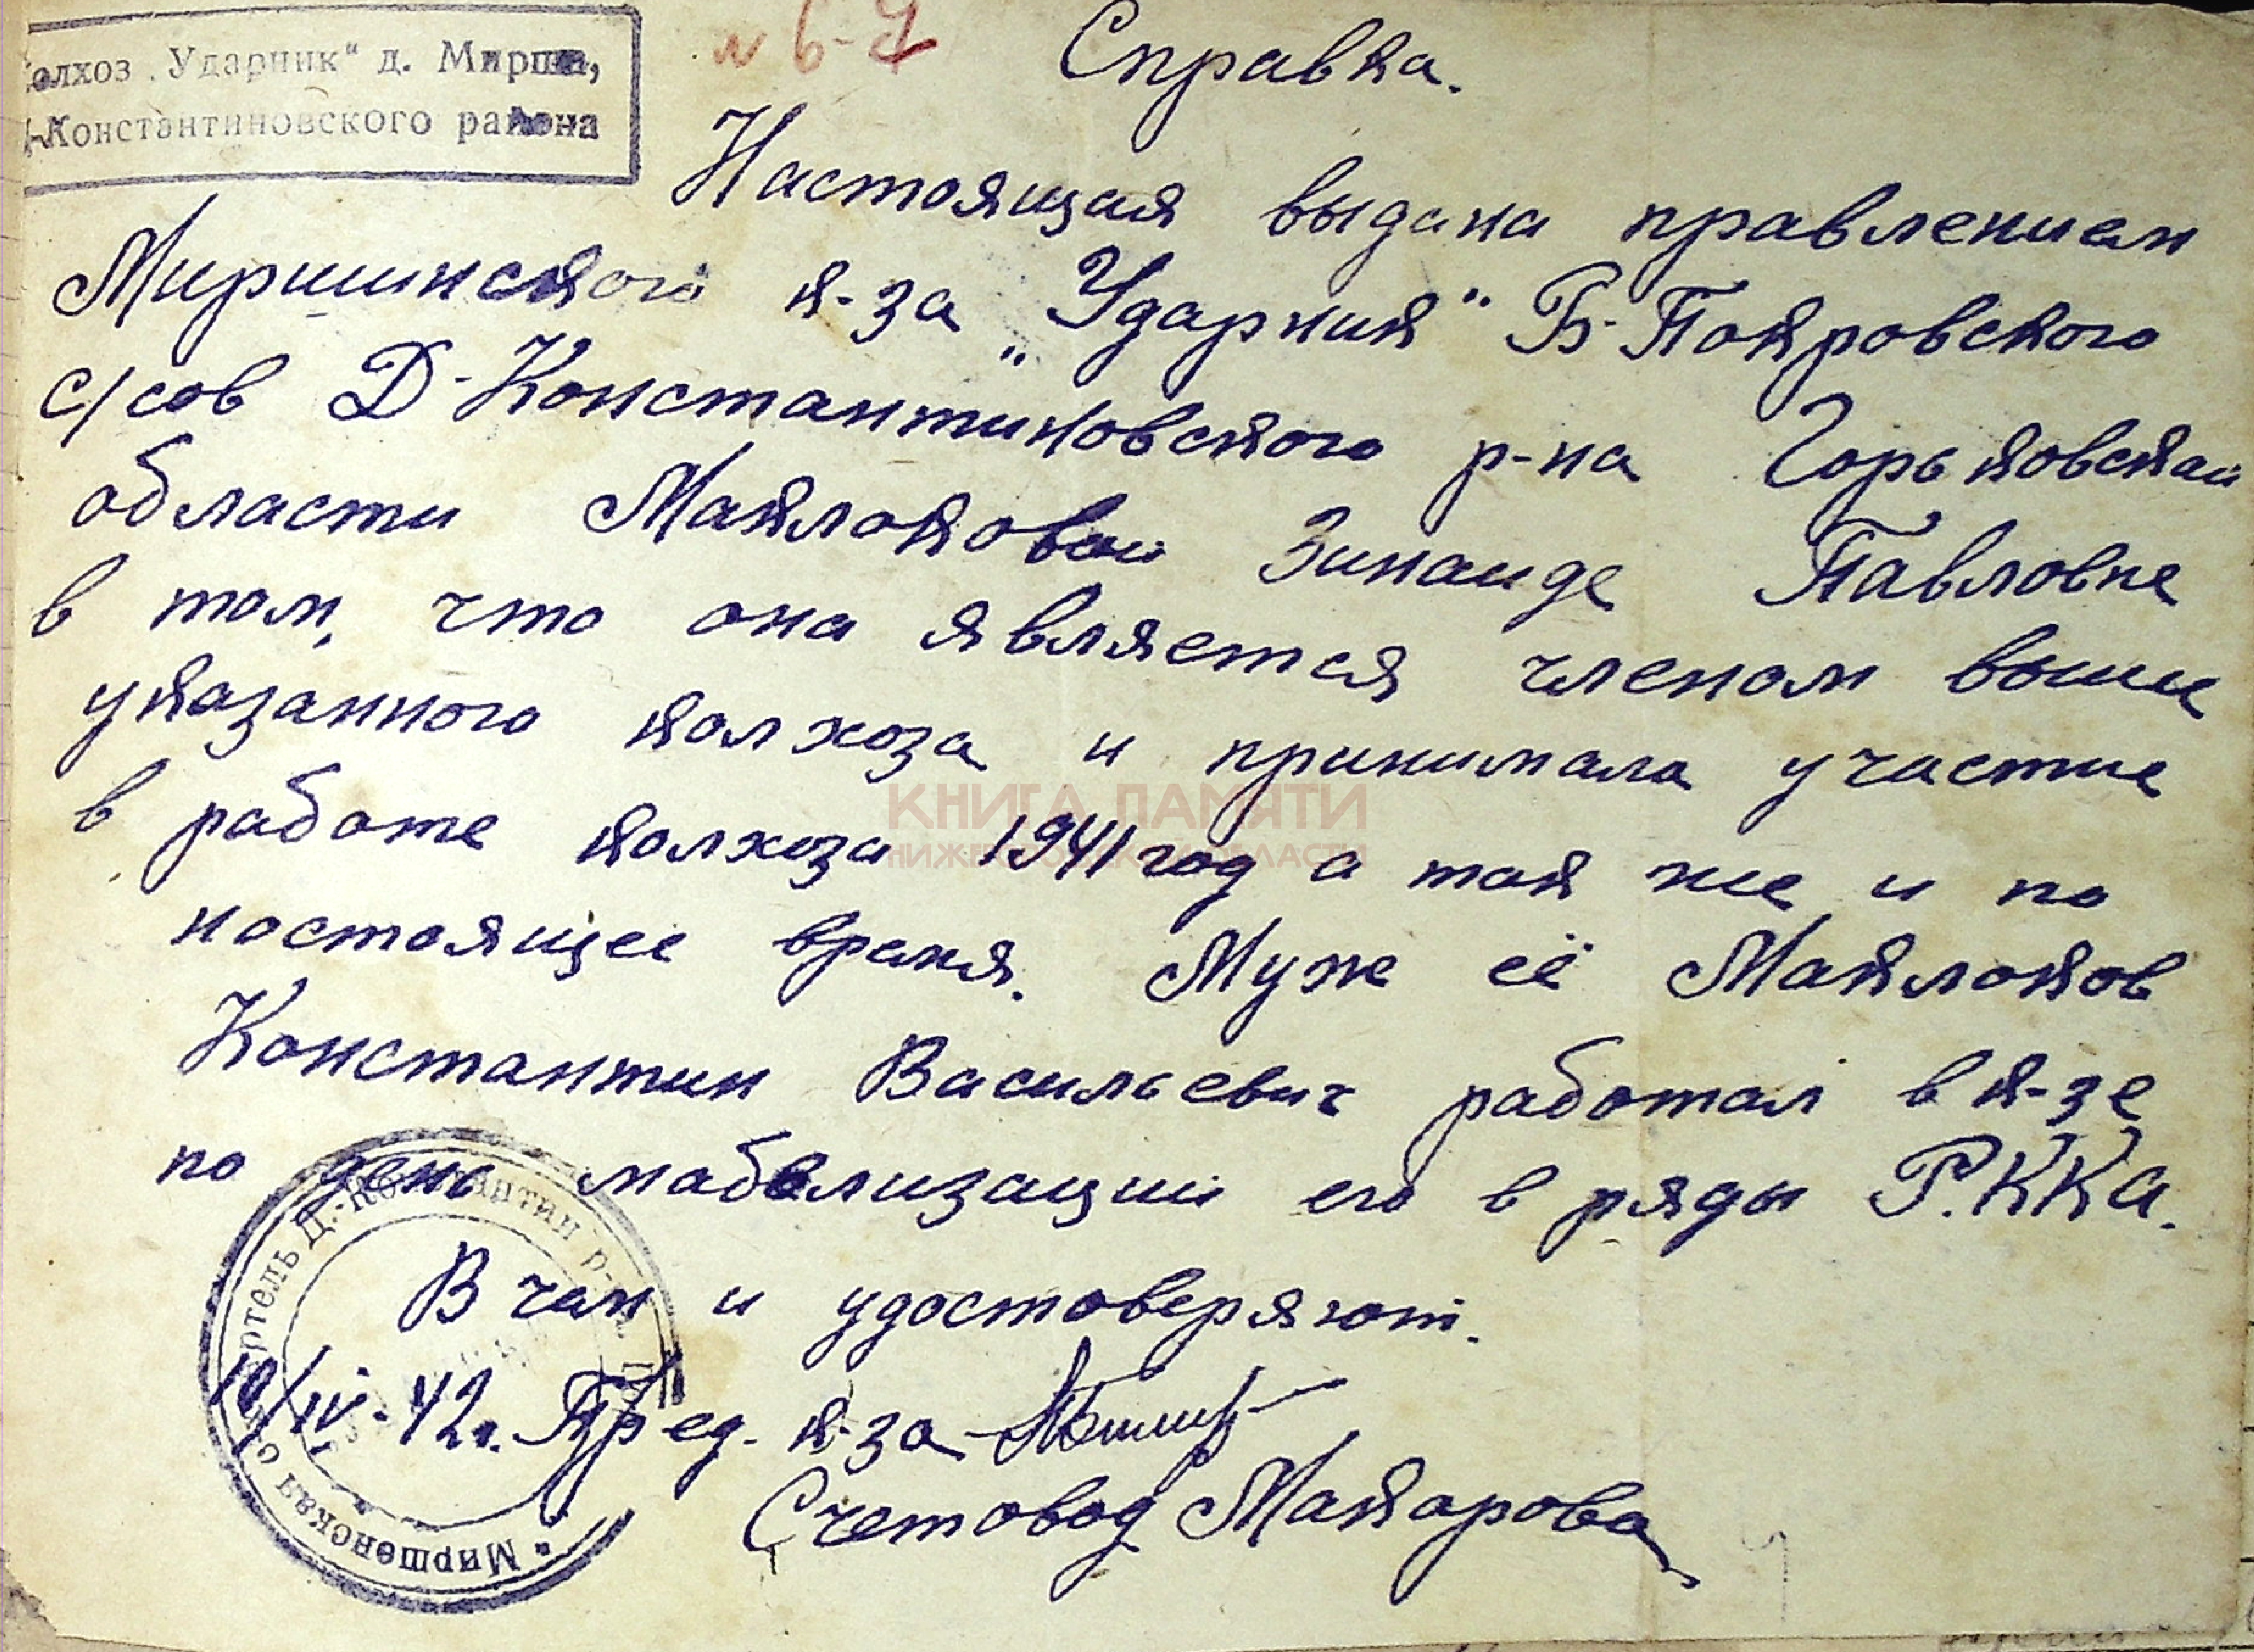 Колхоз „Ударник“ д. Мирша,
Д-Константиновского района
№ 6-7
Справка.
Настоящая выдана правлением
Миршинского к-за „Ударник“ Б-Покровского
с/сов Д-Константиновского р-на Горьковской
области Маклоковой Зинаиде Павловне
в том, что она является членом выше
указанного колхоза и принимала участие
в работе колхоза 1941 год а так же и по
настоящее время. Муж её Маклоков
Константин Васильевич работал в к-зе
по день мабелизации его в ряды Р.ККА.
В чем и удостоверяют.
10/IV-42г. Пред. к-за
Счетовод Макарова
КНИГА ПАМЯТИ
НИЖЕГОРОДСКОЙ ОБЛАСТИ
Миршенская артель Д.-Константин р-